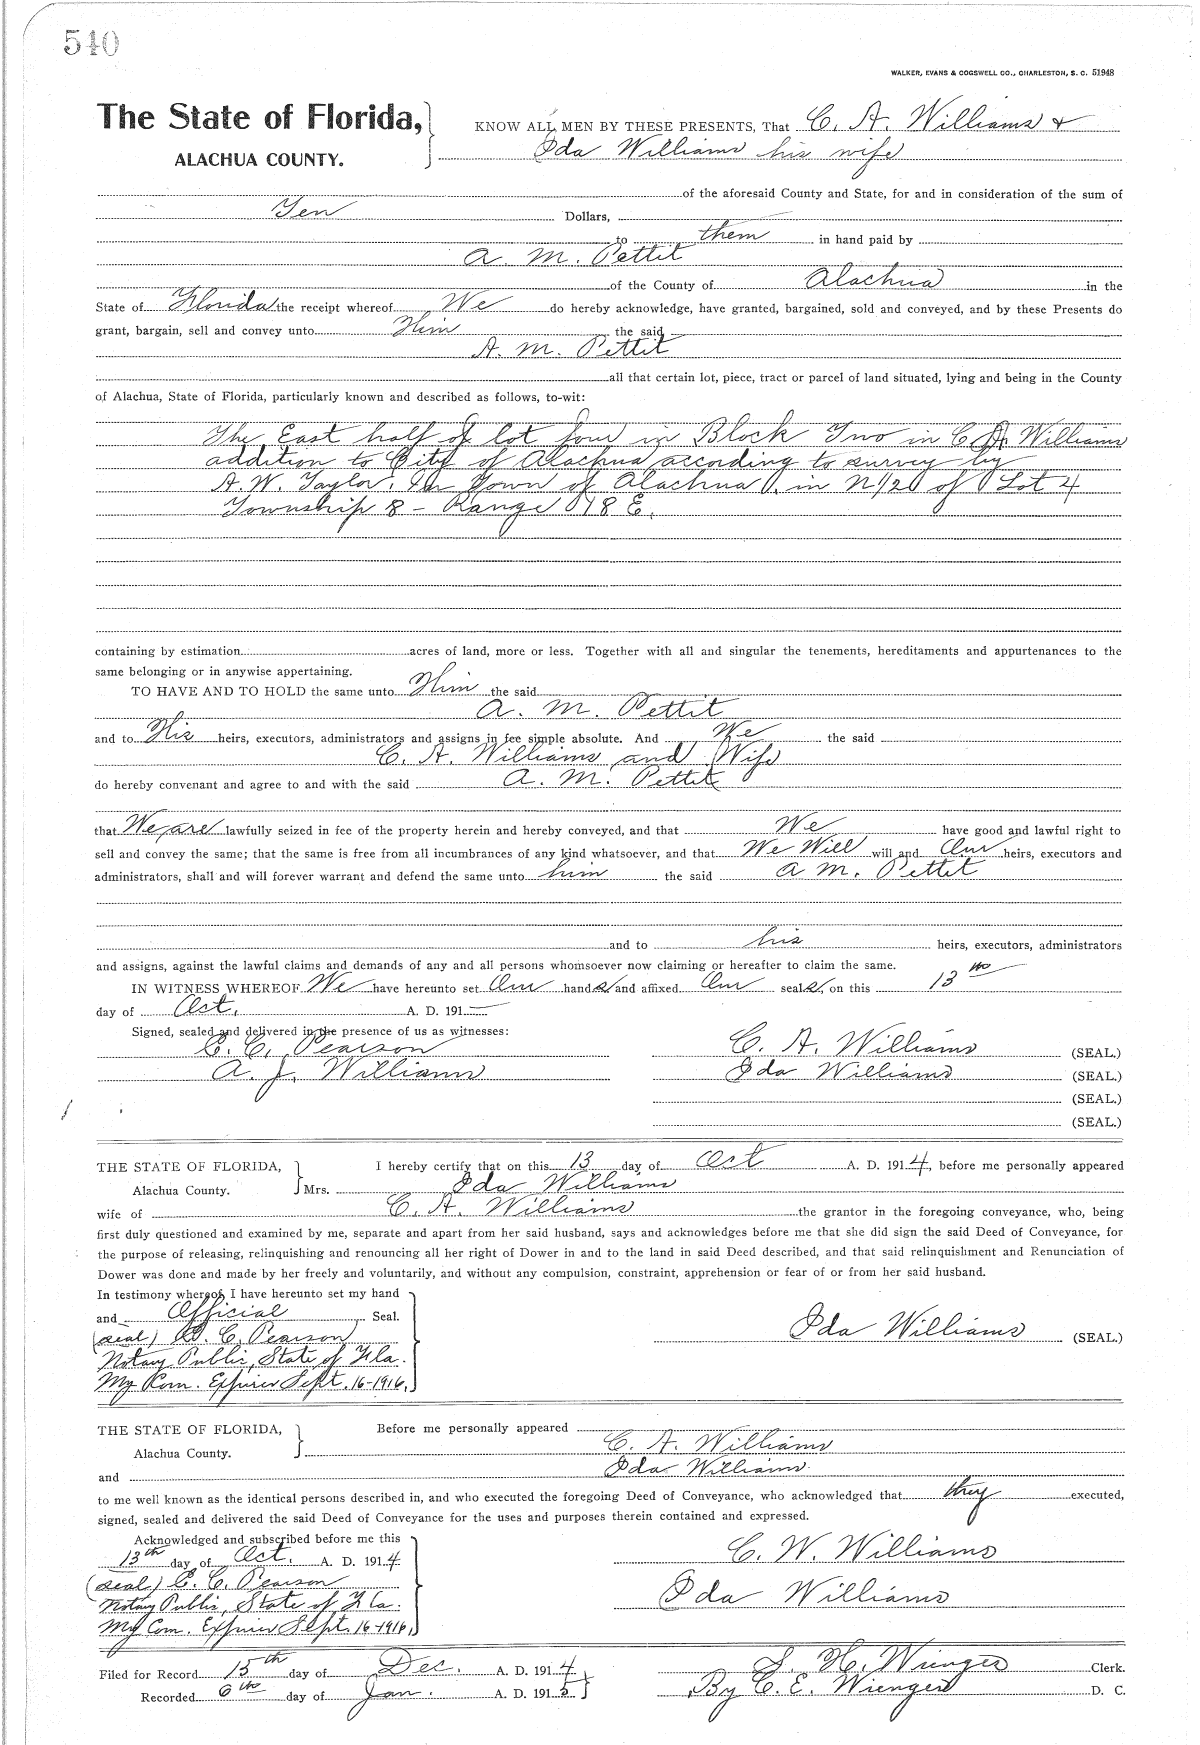 540
WALKER, EVANS & COGSWELL CO., CHARLESTON, S. C. 51948
The State of Florida, KNOW ALL MEN BY THESE PRESENTS, That C. A. Williams &
ALACHUA COUNTY. Ida Williams his wife
of the aforesaid County and State, for and in consideration of the sum of
Ten Dollars,
to them in hand paid by
A. M. Pettit
of the County of Alachua in the
State of Florida the receipt whereof We do hereby acknowledge, have granted, bargained, sold and conveyed, and by these Presents do
grant, bargain, sell and convey unto Him the said
A. M. Pettit
all that certain lot, piece, tract or parcel of land situated, lying and being in the County
of Alachua, State of Florida, particularly known and described as follows, to-wit:
The East half of lot four in Block Two in C A Williams
addition to City of Alachua according to survey by
A. W. Taylor. In Town of Alachua, in N 1/2 of Lot 4
Township 8 - Range 18 E.
containing by estimation acres of land, more or less. Together with all and singular the tenements, hereditaments and appurtenances to the
same belonging or in anywise appertaining.
TO HAVE AND TO HOLD the same unto Him the said
A. M. Pettit
and to His heirs, executors, administrators and assigns in fee simple absolute. And We the said
C. A. Williams and Wife
do hereby convenant and agree to and with the said A. M. Pettit
that We are lawfully seized in fee of the property herein and hereby conveyed, and that We have good and lawful right to
sell and convey the same; that the same is free from all incumbrances of any kind whatsoever, and that We Will will and Our heirs, executors and
administrators, shall and will forever warrant and defend the same unto him the said A M. Pettit
and to his heirs, executors, administrators
and assigns, against the lawful claims and demands of any and all persons whomsoever now claiming or hereafter to claim the same.
IN WITNESS WHEREOF We have hereunto set Our hands and affixed Our seals, on this 13
day of Oct. A. D. 191
Signed, sealed and delivered in the presence of us as witnesses:
C. C. Pearson C. A. Williams (SEAL.)
A. J. Williams Ida Williams (SEAL.)
(SEAL.)
(SEAL.)
THE STATE OF FLORIDA, I hereby certify that on this 13 day of Oct A. D. 1914, before me personally appeared
Alachua County. Mrs. Ida Williams
wife of C. A. Williams the grantor in the foregoing conveyance, who, being
first duly questioned and examined by me, separate and apart from her said husband, says and acknowledges before me that she did sign the said Deed of Conveyance, for
the purpose of releasing, relinquishing and renouncing all her right of Dower in and to the land in said Deed described, and that said relinquishment and Renunciation of
Dower was done and made by her freely and voluntarily, and without any compulsion, constraint, apprehension or fear of or from her said husband.
In testimony whereof, I have hereunto set my hand
and Official Seal.
(seal) C. C. Pearson Ida Williams (SEAL.)
Notary Public, State of Fla.
My Com. Expires Sept. 16-1916.
THE STATE OF FLORIDA, Before me personally appeared
Alachua County. C. A. Williams
and Ida Williams
to me well known as the identical persons described in, and who executed the foregoing Deed of Conveyance, who acknowledged that they executed,
signed, sealed and delivered the said Deed of Conveyance for the uses and purposes therein contained and expressed.
Acknowledged and subscribed before me this
13th day of Oct. A. D. 1914 C. W. Williams
(seal) C. C. Pearson
Notary Public, State of Fla. Ida Williams
My Com. Expires Sept. 16-1916.
Filed for Record 15th day of Dec. A. D. 1914 S. H. Wienges Clerk.
Recorded 6th day of Jan. A. D. 1915 By C. E. Wienges D. C.